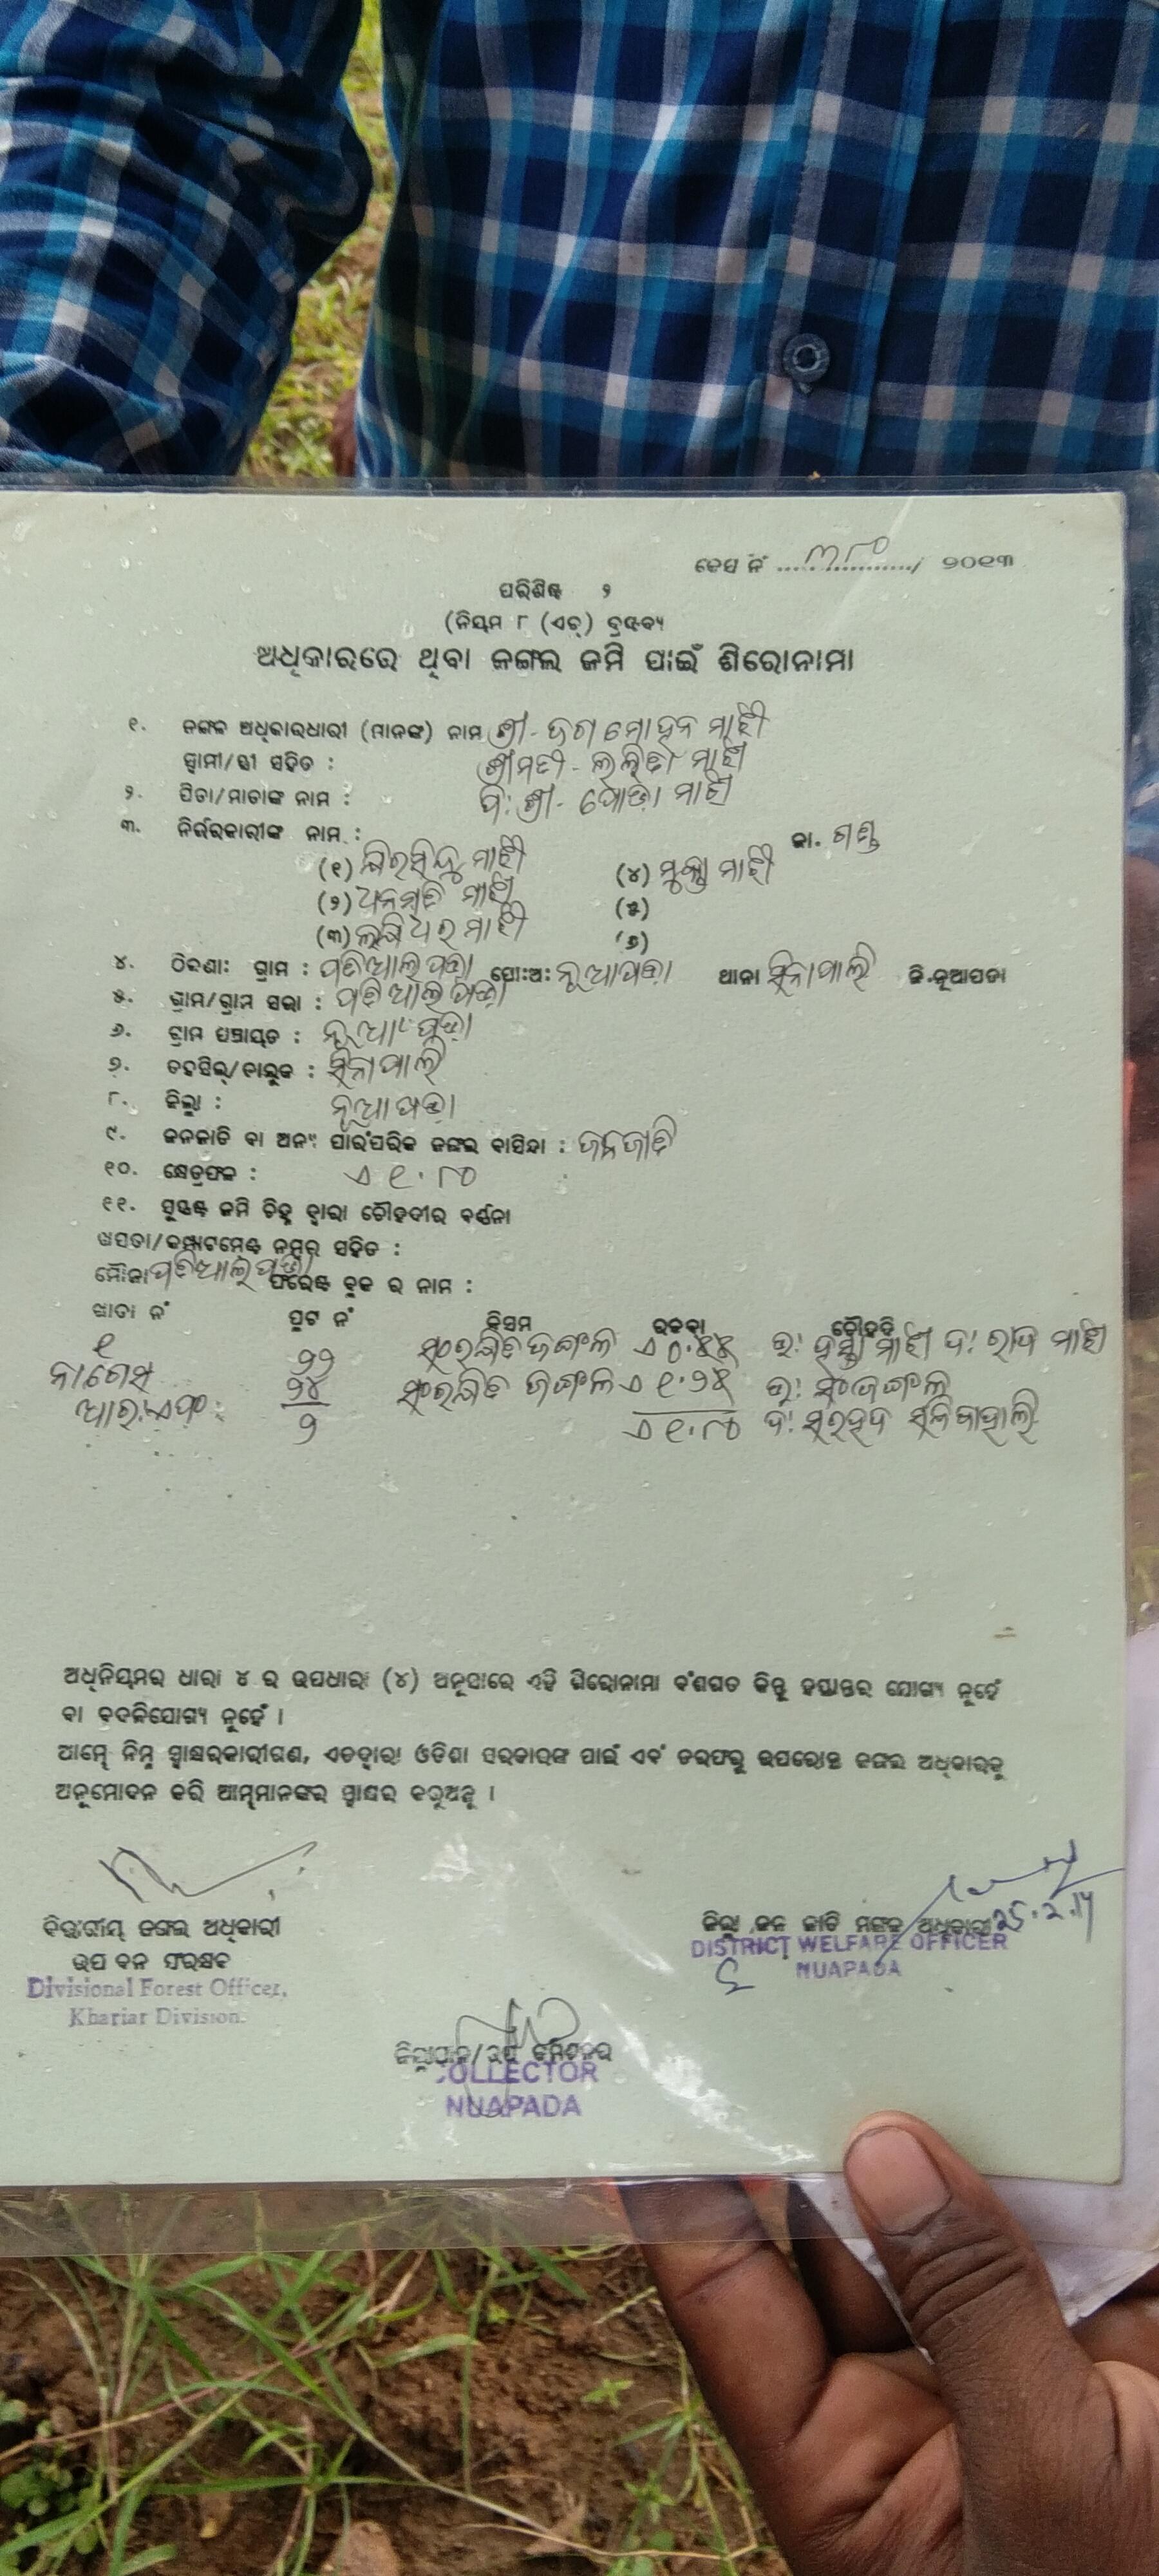 କେସ ନଂ ୩୮୦ / ୨୦୧୩
ପରିଶିଷ୍ଟ ୨
(ନିୟମ ୮ (ଏଚ୍) ଦ୍ରଷ୍ଟବ୍ୟ
ଅଧିକାରରେ ଥିବା ଜଙ୍ଗଲ ଜମି ପାଇଁ ଶିରୋନାମା
୧. ଜଙ୍ଗଲ ଅଧିକାରଧାରୀ (ମାନଙ୍କ) ନାମ ଶ୍ରୀ - ଜଗମୋହନ ମାଝୀ
ସ୍ୱାମୀ/ସ୍ତ୍ରୀ ସହିତ : ଶ୍ରୀମତୀ - ଲଳିତା ମାଝୀ
୨. ପିତା/ମାତାଙ୍କ ନାମ : ପି: ଶ୍ରୀ - ମାଝୀ
୩. ନିର୍ଭରକାରୀଙ୍କ ନାମ : ଜା. ଗଣ୍ଡ
(୧) ମାଝୀ (୪) ମୁକ୍ତା ମାଝୀ
(୨) ଧନମତି ମାଝୀ (୫)
(୩) ମାଝୀ (୬)
୪. ଠିକଣା: ଗ୍ରାମ : ପତିଆଲପଡା ପୋ:ଅ: ନୂଆପଡା ଥାନା ସିନାପାଲି ଜି.ନୂଆପଡା
୫. ଗ୍ରାମ/ଗ୍ରାମ ସଭା : ପତିଆଲପଡା
୬. ଗ୍ରାମ ପଞ୍ଚାୟତ : ନୂଆପଡା
୭. ତହସିଲ୍/ତାଲୁକ : ସିନାପାଲି
୮. ଜିଲ୍ଲା : ନୂଆପଡା
୯. ଜନଜାତି ବା ଅନ୍ୟ ପାରଂପରିକ ଜଙ୍ଗଲ ବାସିନ୍ଦା : ଜନଜାତି
୧୦. କ୍ଷେତ୍ରଫଳ : ଏ ୧.୮୦
୧୧. ସୁସ୍ପଷ୍ଟ ଜମି ଚିହ୍ନ ଦ୍ୱାରା ଚୌହଦୀର ବର୍ଣ୍ଣନା
ଖସଡା/କମ୍ପାଟମେଣ୍ଟ ନମ୍ବର ସହିତ :
ମୌଜା ପତିଆଲପଡା ଫରେଷ୍ଟ ବ୍ଲକ ର ନାମ :
ଖାତା ନଂ ପ୍ଲଟ ନଂ କିସମ ରକବା ଚୌହଦି
୧ ୨୨ ସଂରକ୍ଷିତ ଜଙ୍ଗଲ ଏ ୦.୫୫ ଉ: ମାଝୀ ଦ: ରାଜ ମାଝୀ
୨୪ ସଂରକ୍ଷିତ ଜଙ୍ଗଲ ଏ ୧.୨୫ ଉ: ସଂଜଙ୍ଗଲ
ଆର.ଏଫ: ୨ ଏ ୧.୮୦ ଦ: ସରହଦ
ଅଧିନିୟମର ଧାରା ୪ ର ଉପଧାରା (୪) ଅନୁସାରେ ଏହି ଶିରୋନାମା ବଂଶଗତ କିନ୍ତୁ ହସ୍ତାନ୍ତର ଯୋଗ୍ୟ ନୁହେଁ
ବା ବଦଳିଯୋଗ୍ୟ ନୁହେଁ ।
ଆମ୍ଭେ ନିମ୍ନ ସ୍ୱାକ୍ଷରକାରୀଗଣ, ଏତଦ୍ୱାରା ଓଡିଶା ସରକାରଙ୍କ ପାଇଁ ଏବଂ ତରଫରୁ ଉପରୋକ୍ତ ଜଙ୍ଗଲ ଅଧିକାରକୁ
ଅନୁମୋଦନ କରି ଆମ୍ଭମାନଙ୍କର ସ୍ୱାକ୍ଷର କରୁଅଛୁ ।
25.2.14
ବିଭାଗୀୟ ଜଙ୍ଗଲ ଅଧିକାରୀ ଜିଲ୍ଲା ଜନ ଜାତି ମଙ୍ଗଳ ଅଧିକାରୀ
ଉପ ବନ ସଂରକ୍ଷକ DISTRICT WELFARE OFFICER
Divisional Forest Officer, NUAPADA
Khariar Division.
ଜିଲ୍ଲାପାଳ/ଉପ କମିଶନର
COLLECTOR
NUAPADA